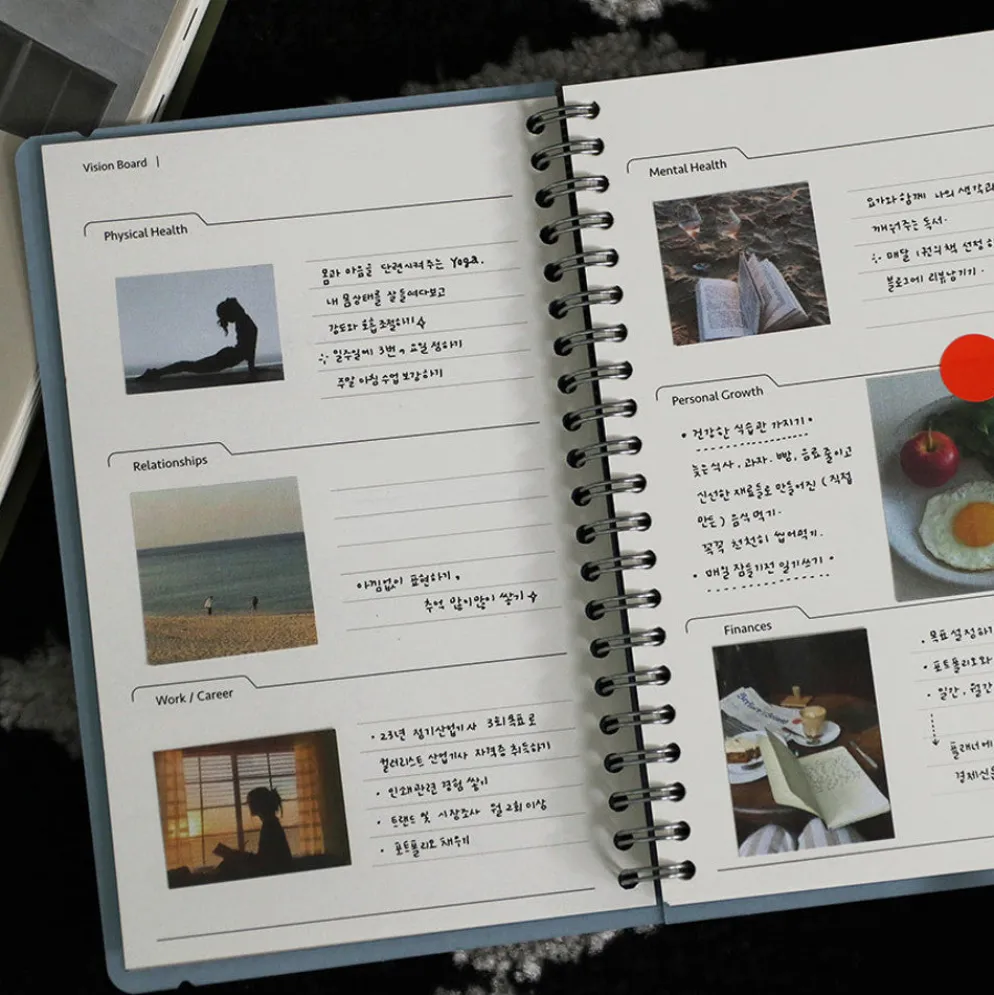 Vision Board |
Physical Health
몸과 마음을 단련시켜 주는 Yoga.
내 몸상태를 잘 들여다보고
강도와 호흡 조절하기
일주일에 3번, 요일 정하기
주말 아침 수업 보강하기
Relationships
아낌없이 표현하기,
추억 많이많이 쌓기
Work / Career
• 23년 정기산업기사 3회 목표로
컬러리스트 산업기사 자격증 취득하기
• 인쇄관련 경험 쌓기
• 트랜드 및 시장조사 월 2회 이상
• 포트폴리오 채우기
Mental Health
요가와 함께 나의 생각과
깨워주는 독서.
매달 1권의 책 선정
블로그에 리뷰남기기.
Personal Growth
• 건강한 식습관 가지기 •
늦은식사, 과자, 빵, 음료 줄이고
신선한 재료들로 만들어진 (직접
만든) 음식 먹기.
꼭꼭 천천히 씹어먹기.
• 매일 잠들기전 일기쓰기 •
Finances
• 목표 설정하기
• 포트폴리오와
• 일간, 월간
플래너에